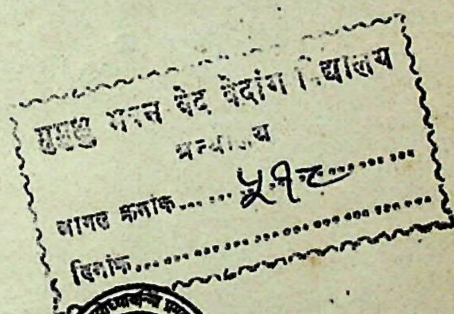 मुमुक्षु भवन वेद वेदांग विद्यालय
ग्रन्थालय
आगत क्रमांक...... ५१८ ............
दिनांक..............................